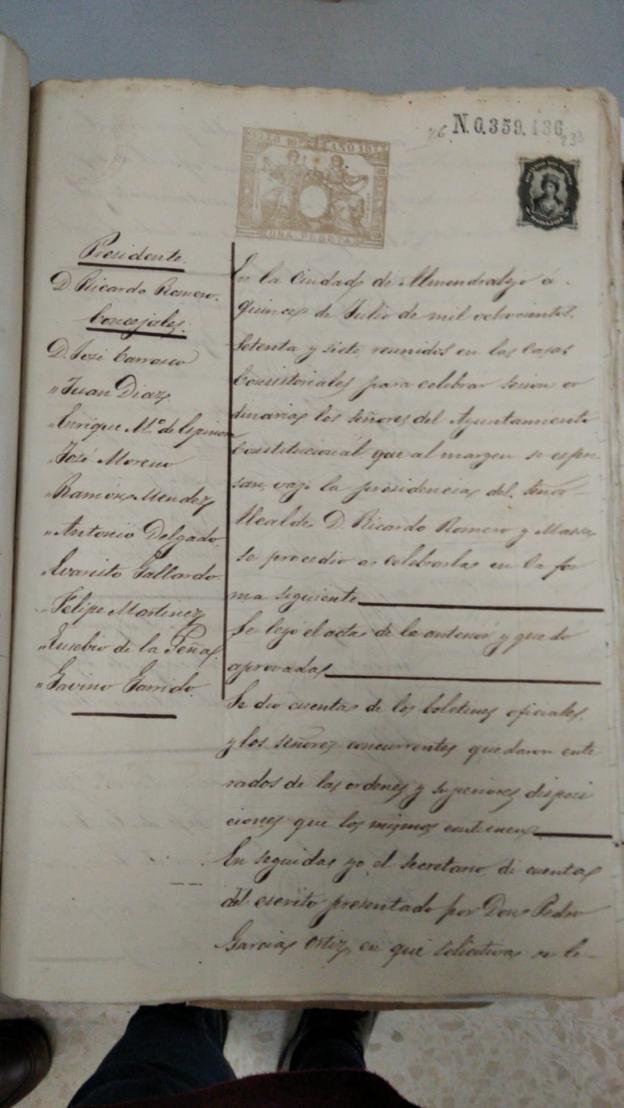 N.0.359.436
SELLO 10º AÑO 1877
UNA PESETA
Presidente
D Ricardo Romero.
Concejales.
D. José Carrasco
" Juan Diaz
" Enrique Mª de Espinosa
" José Moreno
" Ramon Mendez
" Antonio Delgado
" Evaristo Gallardo
" Felipe Martinez
" Eusebio de la Peña
" Gavino Garrido
En la Ciudad de Almendralejo á
quince de Julio de mil ochocientos
setenta y siete reunidos en las Casas
Consistoriales para celebrar sesion or
dinaria los señores del Ayuntamiento
Constitucional que al margen se espre
san, vajo la presidencia del Señor
Alcalde D. Ricardo Romero y Massa
se procedio a celebrarla en la for
ma siguiente
Se leyo el acta de la anterior y quedo
aprovada
Se dio cuenta de los boletines oficiales
y los señores concurrentes quedaron ente
rados de las ordenes y superiores disposi
ciones que los mismos contienen
En seguida yo el Secretario di cuenta
del escrito presentado por Don Pedro
Garcia Ortiz en que solicitava se le-